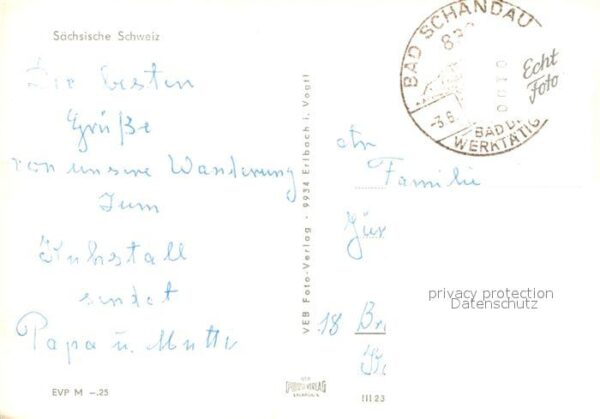 Sächsische Schweiz
Die besten
Grüße
von unsere Wanderung
zum
Kuhstall
sendet
Papa u. Mutti
EVP M –.25
VEB Foto-Verlag · 9934 Erlbach i. Vogtl
BAD SCHANDAU
-3.6.
BAD D.
WERKTÄTIG
Echt
Foto
An
Familie
Jür
18 Br
privacy protection
Datenschutz
III 23